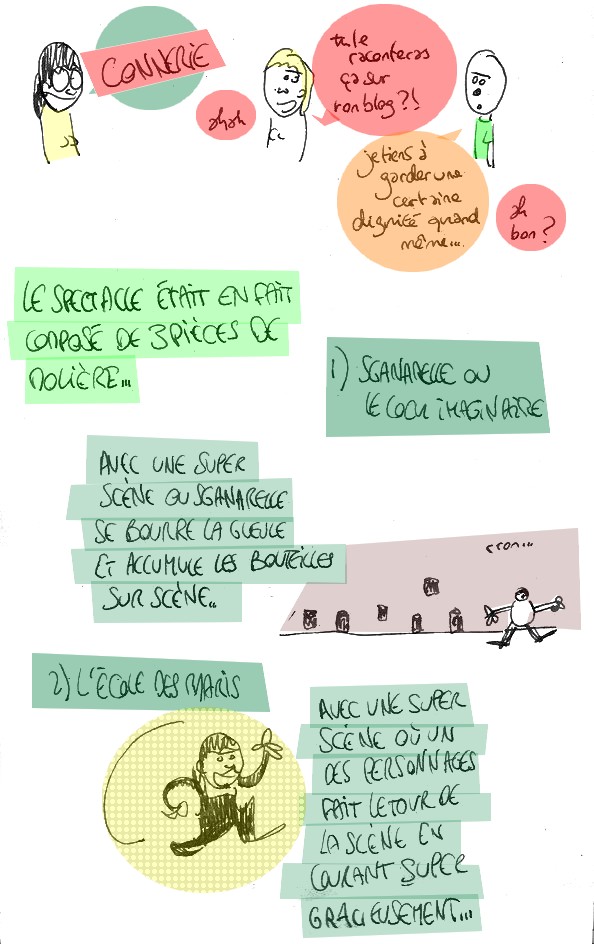 CONNERIE
ahah
tu le
raconteras
ça sur
ton blog?!
je tiens à
garder une
certaine
dignité quand
même...
ah
bon?
LE SPECTACLE ÉTAIT EN FAIT
COMPOSÉ DE 3 PIÈCES DE
MOLIÈRE...
1) SGANARELLE OU
LE COCU IMAGINAIRE
AVEC UNE SUPER
SCÈNE OU SGANARELLE
SE BOURRE LA GUEULE
ET ACCUMULE LES BOUTEILLES
SUR SCÈNE..
2) L'ÉCOLE DES MARIS
AVEC UNE SUPER
SCÈNE OÙ UN
DES PERSONNAGES
FAIT LE TOUR DE
LA SCÈNE EN
COURANT SUPER
GRACIEUSEMENT...